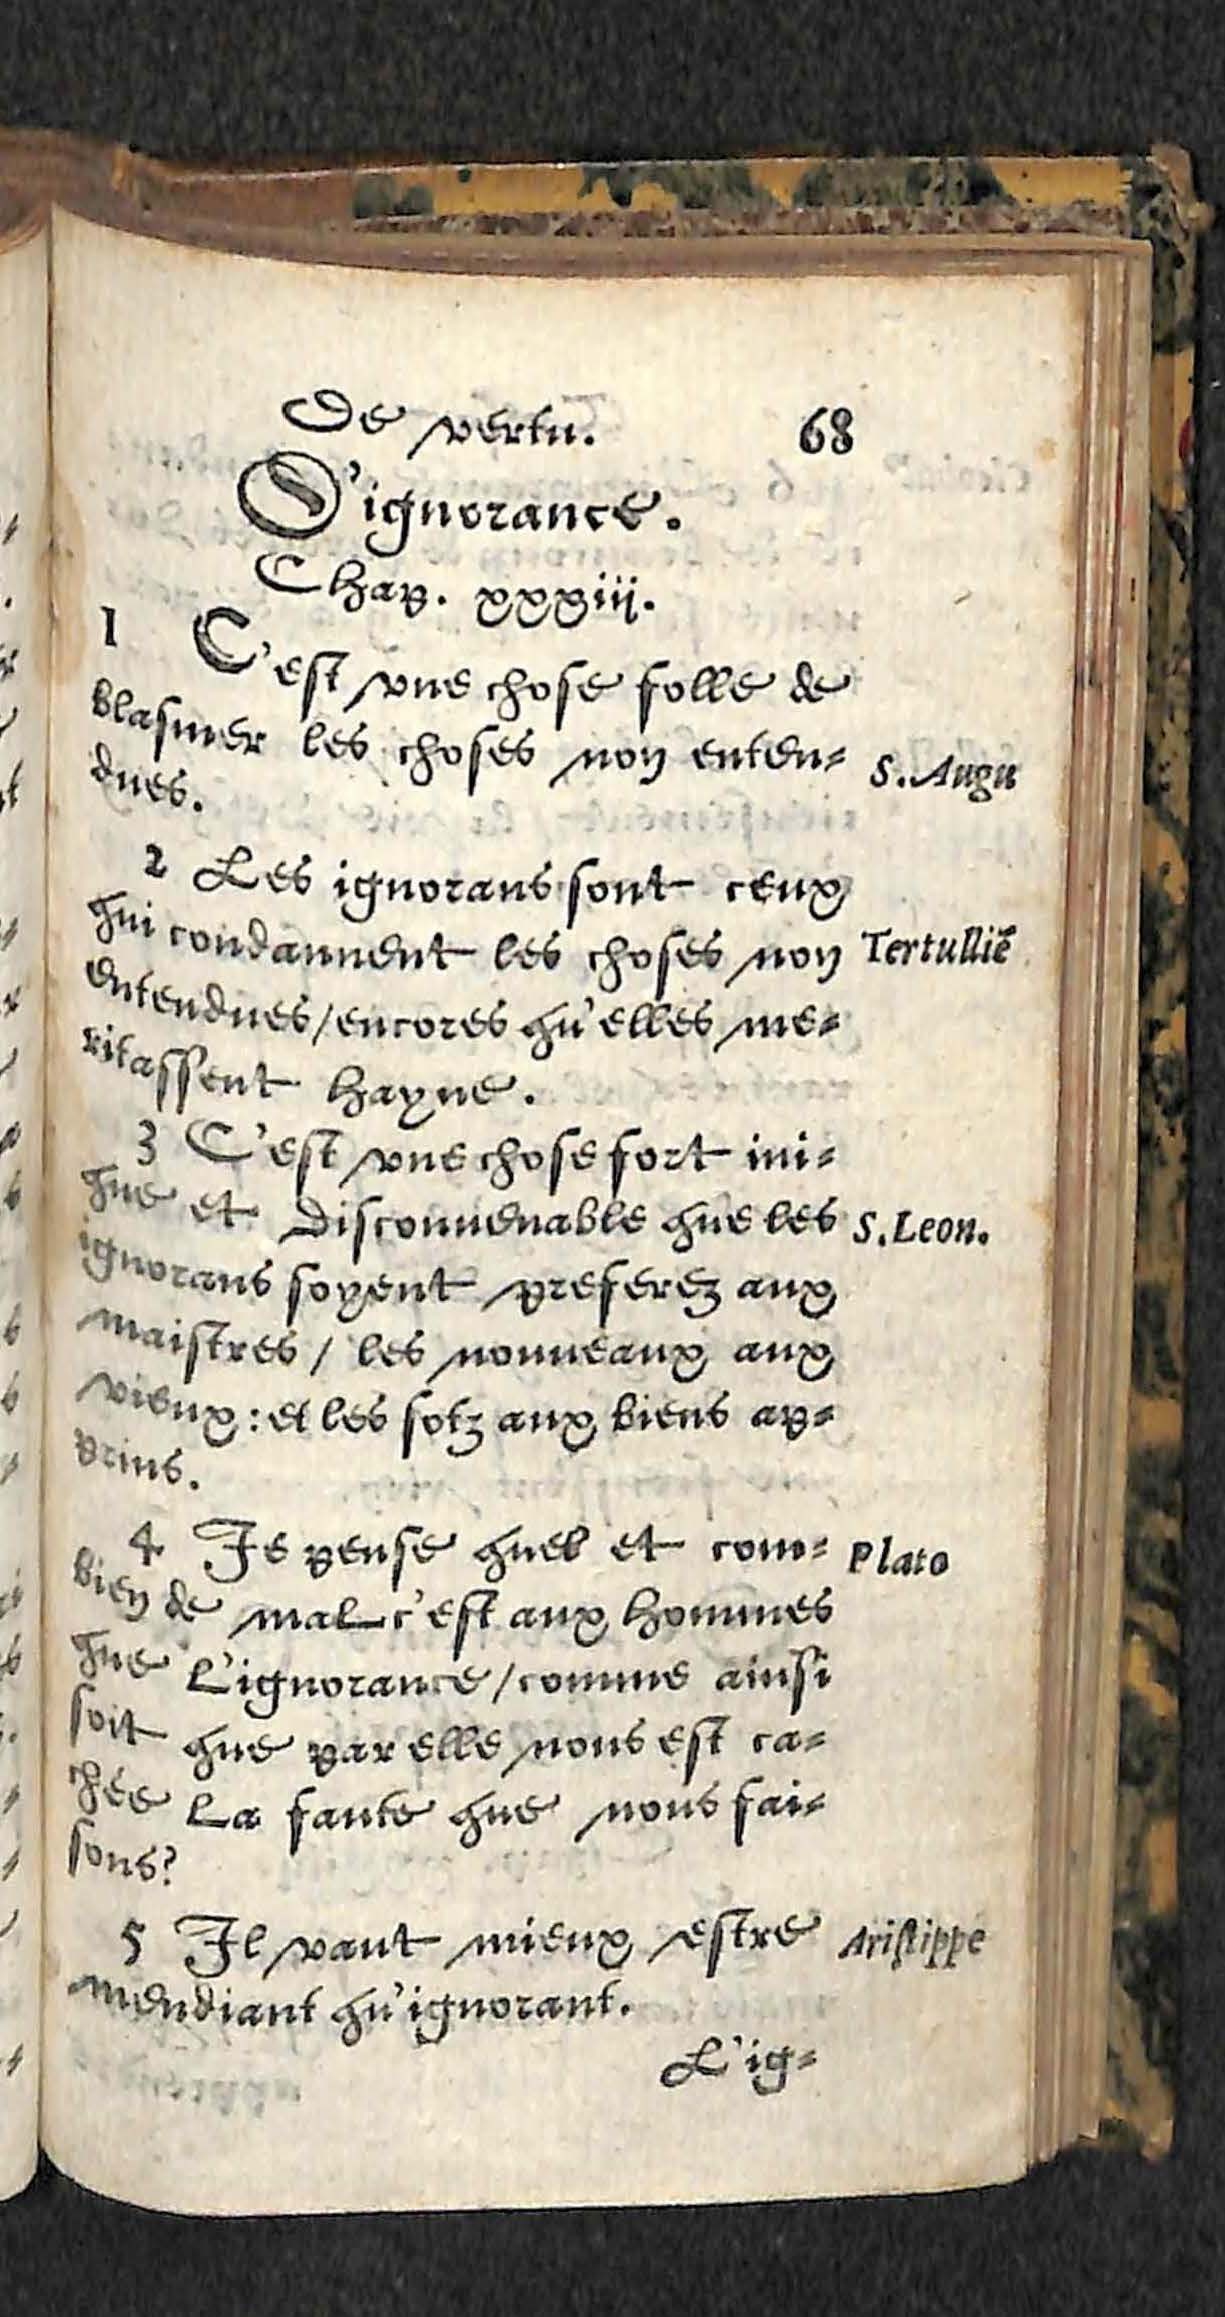 De vertu. 68
D'ignorance.
Chap. xxxiii.
1 C'est vne chose folle de
blasmer les choses non enten=
dues. S. Augu
2 Les ignorans sont ceux
qui condannent les choses non
entendues / encores qu'elles me=
ritassent hayne. Tertulliẽ
3 C'est vne chose fort ini=
que et disconuenable que les
ignorans soyent preferez aux
maistres / les nouueaux aux
vieux : et les sotz aux biens ap=
prins. S. Leon.
4 Je pense quel et com=
bien de mal c'est aux hommes
que l'ignorance / comme ainsi
soit que par elle nous est ca=
chée la faute que nous fai=
sons? Plato
5 Il vaut mieux estre
mendiant qu'ignorant. Aristippe
L'ig=